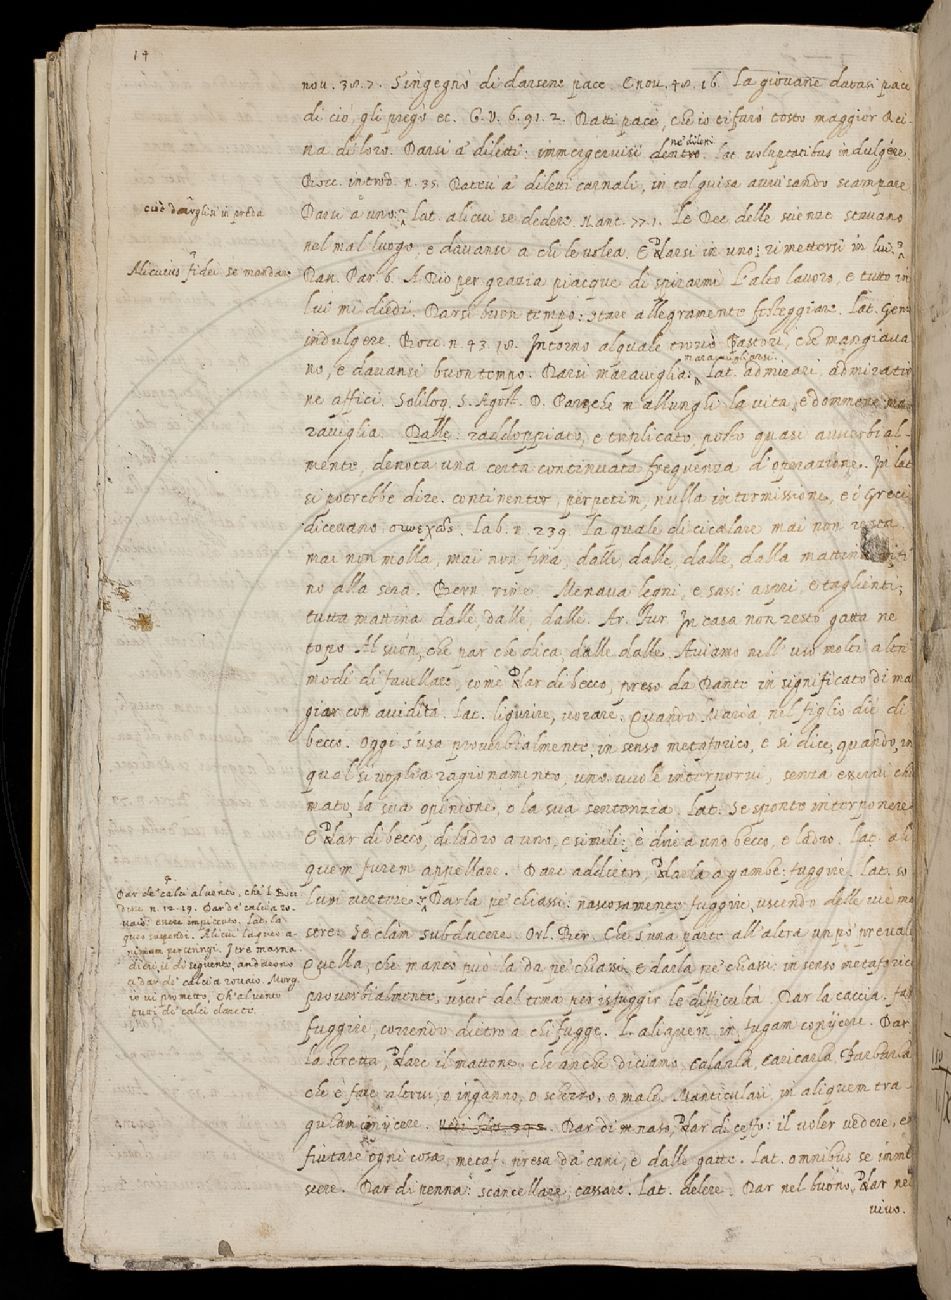 14
nov. 38. 7. S'ingegnò di darsene pace. E nov. 48. 16. La giovane davasi pace
di ciò, gli pregò ec. G. V. 6. 91. 2. Datti pace, ch'io ti farò tosto maggior Rei-
na di loro. Darsi a' diletti: immergervisi dentro. Lat. voluptatibus indulgere.
ne' diletti
Bocc. introd. n. 35. Datevi a' diletti carnali, in tal guisa avvisando scampare.
Darsi a uno: Lat. alicui se dedere. N. ant. 77. 1. Le Dee delle scienze stavano
cioè darglisi in preda
nel mal luogo, e davansi a chi le volea. E Darsi in uno: rimettersi in lui.
Alicuius fidei se mandare
Dan. Par. 6. A Dio per grazia piacque di spirarmi L'alto lavoro, e tutto in
lui mi diedi. Darsi buon tempo: stare allegramente festeggiare. Lat. Genio
indulgere. Bocc. n. 43. 18. Intorno al quale trovò Pastori, che mangiava-
no, e davansi buon tempo. Darsi maraviglia: Lat. admirari, admiratio-
maravigliarsi.
ne affici. Soliloq. S. Agost. D. Perche m'allunghi la vita, e dommene ma-
raviglia. Dalle: raddoppiato, e triplicato, posto quasi avverbial-
mente, denota una certa continuata frequenza d'operazione. In lat.
si potrebbe dire. continenter, perpetim, nulla intermissione, e i Greci
dicevano συνεχῶς. Lab. n. 239. La quale di cicalare mai non resta.
mai non molla, mai non fina, dalle, dalle, dalle, dalla mattina infi-
no alla sera. Bern. rim. Menava legni, e sassi aspri, e taglienti;
tutta mattina dalle, dalle, dalle. Ar. Fur. In casa non restò gatta nè
topo Al suon, che par che dica, dalle dalle. Aviamo nell'uso molti altri
modi di favellare, come Dar di becco, preso da Dante in significato di man-
giar con avidità. Lat. ligurire, vorare. Quando Maria nel figlio diè di
becco. Oggi s'usa proverbialmente in senso metaforico, e si dice, quando, in
qualsivoglia ragionamento, uno vuole interporvi, senza esservi chia-
mato, la sua openione, o la sua sentenzia. Lat. Se sponte interponere.
E Dar di becco, di ladro a uno, e simili, è dire a uno becco, e ladro. Lat. ali-
quem furem appellare. Dare addietro, Darla a gambe: fuggire. Lat. so-
lum vertere. Darla pe' chiassi: nascosamente fuggire, uscendo delle vie mae-
stre. Se clam subducere. Orl. Ber. Che s'una parte all'altra un po' prevale
Quella, che manco può la da ne' chiassi. E darla ne' chiassi: in senso metaforico
proverbialmente, uscir del tema per isfuggir le difficultà. Dar la caccia. far
fuggire, correndo dietro a chi fugge. L. aliquem in fugam conijcere. Dar
la stretta, Dare il mattone, che anche diciamo, Calarla, Caricarla, Barbarla
che è fare altrui, o inganno, o scherzo, o male. Manticulari, in aliquem tra-
gulam conijcere. Dar di m naso, Dar di ceffo: il voler vedere, e
fiutare ogni cosa, metaf. presa da' cani, e dalle gatte. Lat. omnibus se immi-
scere. Dar di penna: scancellare, cassare. Lat. delere. Dar nel buono, Dar nel
vivo.
Dar de' calci al vento, che 'l Boc.
disse n. 12. 19. Dar de' calci a ro-
vaio: essere impiccato. Lat. la-
queo suspendi. Alicui laqueo a-
nimam perstringi. I tre masna-
dieri, il dì seguente, andarono
a dar de' calci a rovaio. Morg.
io vi prometto, Ch'al vento
tutti de' calci darete.